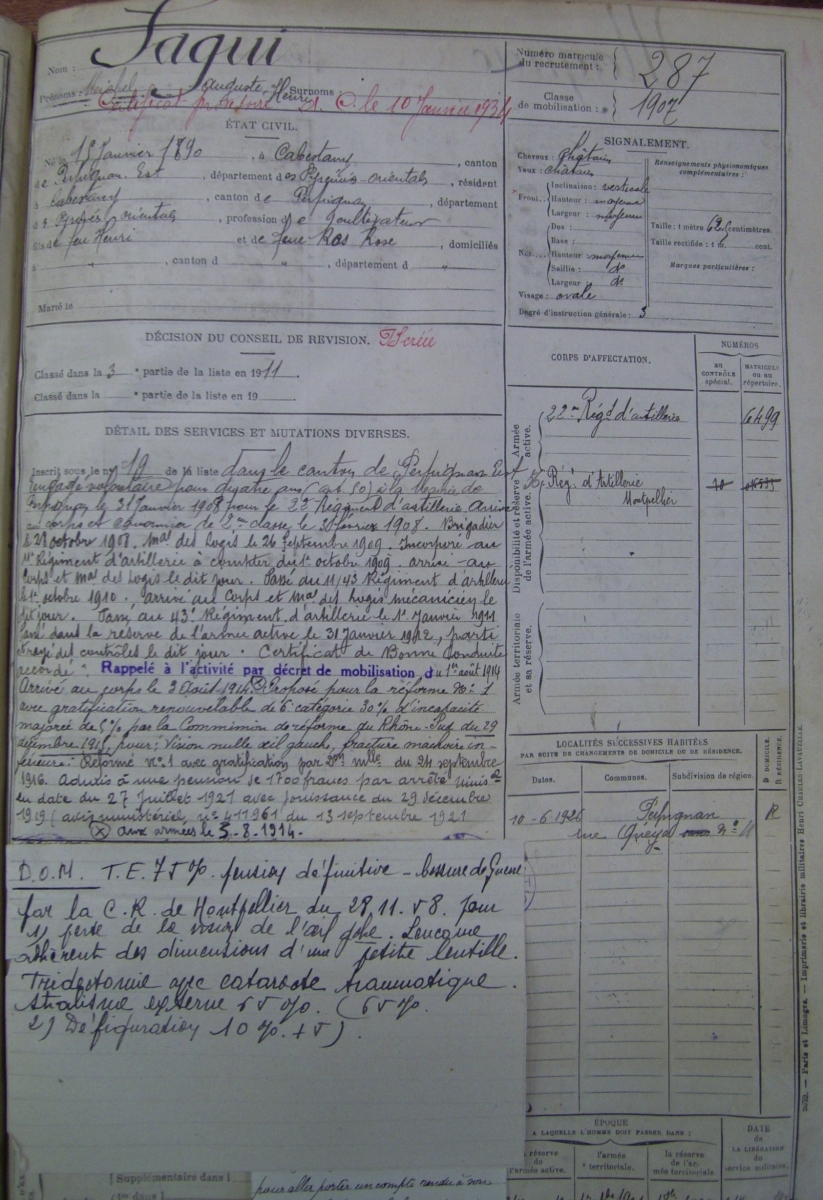 Nom : Jaqui
Prénoms : Michel, auguste Henri Surnoms
Certificat provisoire d. C. le 10 Janvier 1934
Numéro matricule du recrutement : 287
Classe de mobilisation : 1907
ÉTAT CIVIL.
Né le 15 Janvier 1890, à Cabestany, canton
de Perpignan Est, département des Pyrénées-orientales, résident
à Cabestany, canton de Perpignan, département
des Pyrénées orientales, profession de Cultivateur
fils de feu Henri et de feue Ros Rose, domiciliés
à "
, canton d "
, département d "
Marié le
DÉCISION DU CONSEIL DE REVISION.
Classé dans la 3e partie de la liste en 1911
Classé dans la e partie de la liste en 19
DÉTAIL DES SERVICES ET MUTATIONS DIVERSES.
Inscrit sous le no 19 de la liste dans le canton de Perpignan Est
Engagé volontaire pour quatre ans (art. 50) à la mairie de
Perpignan le 31 Janvier 1908 pour le 22e Régiment d'artillerie. Arrivé
au corps et canonnier de 2me classe le février 1908. Brigadier
le 28 octobre 1908. Mal des Logis le 26 Septembre 1909. Incorporé au
11e Régiment d'artillerie à compter du 1er octobre 1909. arrivé au
Corps et Mal des Logis le dit jour. Passé du 11/43 Régiment d'artillerie
le 1er octobre 1910. arrivé au Corps et Mal des Logis mécanicien le
dit jour. Passé au 43e Régiment d'artillerie le 1er Janvier 1911
Passé dans la réserve de l'armée active le 31 Janvier 1912, parti
et rayé des contrôles le dit jour. Certificat de Bonne Conduite
accordé. Rappelé à l'activité par décret de mobilisation du 1er août 1914
Arrivé au corps le 3 Août 1914 (x) Proposé pour la réforme No 1
avec gratification renouvelable de 6e catégorie 30% d'incapacité
majorée de 5% par la Commission de réforme du Rhône-Sud du 29
décembre 1915 pour : Vision nulle œil gauche, fracture mâchoire in-
férieure. Réformé no 1 avec gratification par Don Mlle du 24 septembre
1916. Admis à une pension de 1700 francs par arrêté minisel
en date du 27 Juillet 1921 avec jouissance du 29 décembre
1919 (avis ministériel, no 411961 du 13 septembre 1921
(x) aux armées le 3-8-1914.
D.O.M. T.E. 75 %. pension définitive - blessure de Guerre
par la C.R. de Montpellier du 28.11.58. pour
1) perte de la vision de l'œil gche. Leucome
adhérent des dimensions d'une petite lentille.
Iridectomie avec cataracte traumatique.
Strabisme externe 65 %. (65 %.
2) Défiguration 10 %. + 5)
Supplémentaire dans l
dans l
pour aller porter un compte rendu à son
SIGNALEMENT.
Cheveux : châtain
Yeux : châtain
Front.. Inclinaison : verticale
Hauteur : moyenne
Largeur : moyenne
Nez... Dos :
Base :
Hauteur : moyenne
Saillie : do
Largeur : do
Visage : ovale
Degré d'instruction générale : 3
Renseignements physionomiques complémentaires :
Taille : 1 mètre centimètres.
Taille rectifiée : 1 m. cent.
Marques particulières :
CORPS D'AFFECTATION.
NUMÉROS
AU CONTRÔLE spécial.
MATRICULE OU AU répertoire.
Armée active.
22me Régt d'artillerie 6499
Disponibilité et réserve de l'armée active.
Régt d'Artillerie
Montpellier
Armée territoriale et sa réserve.
LOCALITÉS SUCCESSIVES HABITÉES
PAR SUITE DE CHANGEMENTS DE DOMICILE OU DE RÉSIDENCE.
Dates. Communes. Subdivision de région. D DOMICILE. R RÉSIDENCE.
10-6-1926 Perpignan R
rue
ÉPOQUE
A LAQUELLE L'HOMME DOIT PASSER DANS :
la réserve de l'armée active.
l'armée territoriale.
la réserve de l'armée territoriale
DATE de LA LIBÉRATION du service militaire.
Paris et Limoges. — Imprimerie et librairie militaires Henri CHARLES-LAVAUZELLE.